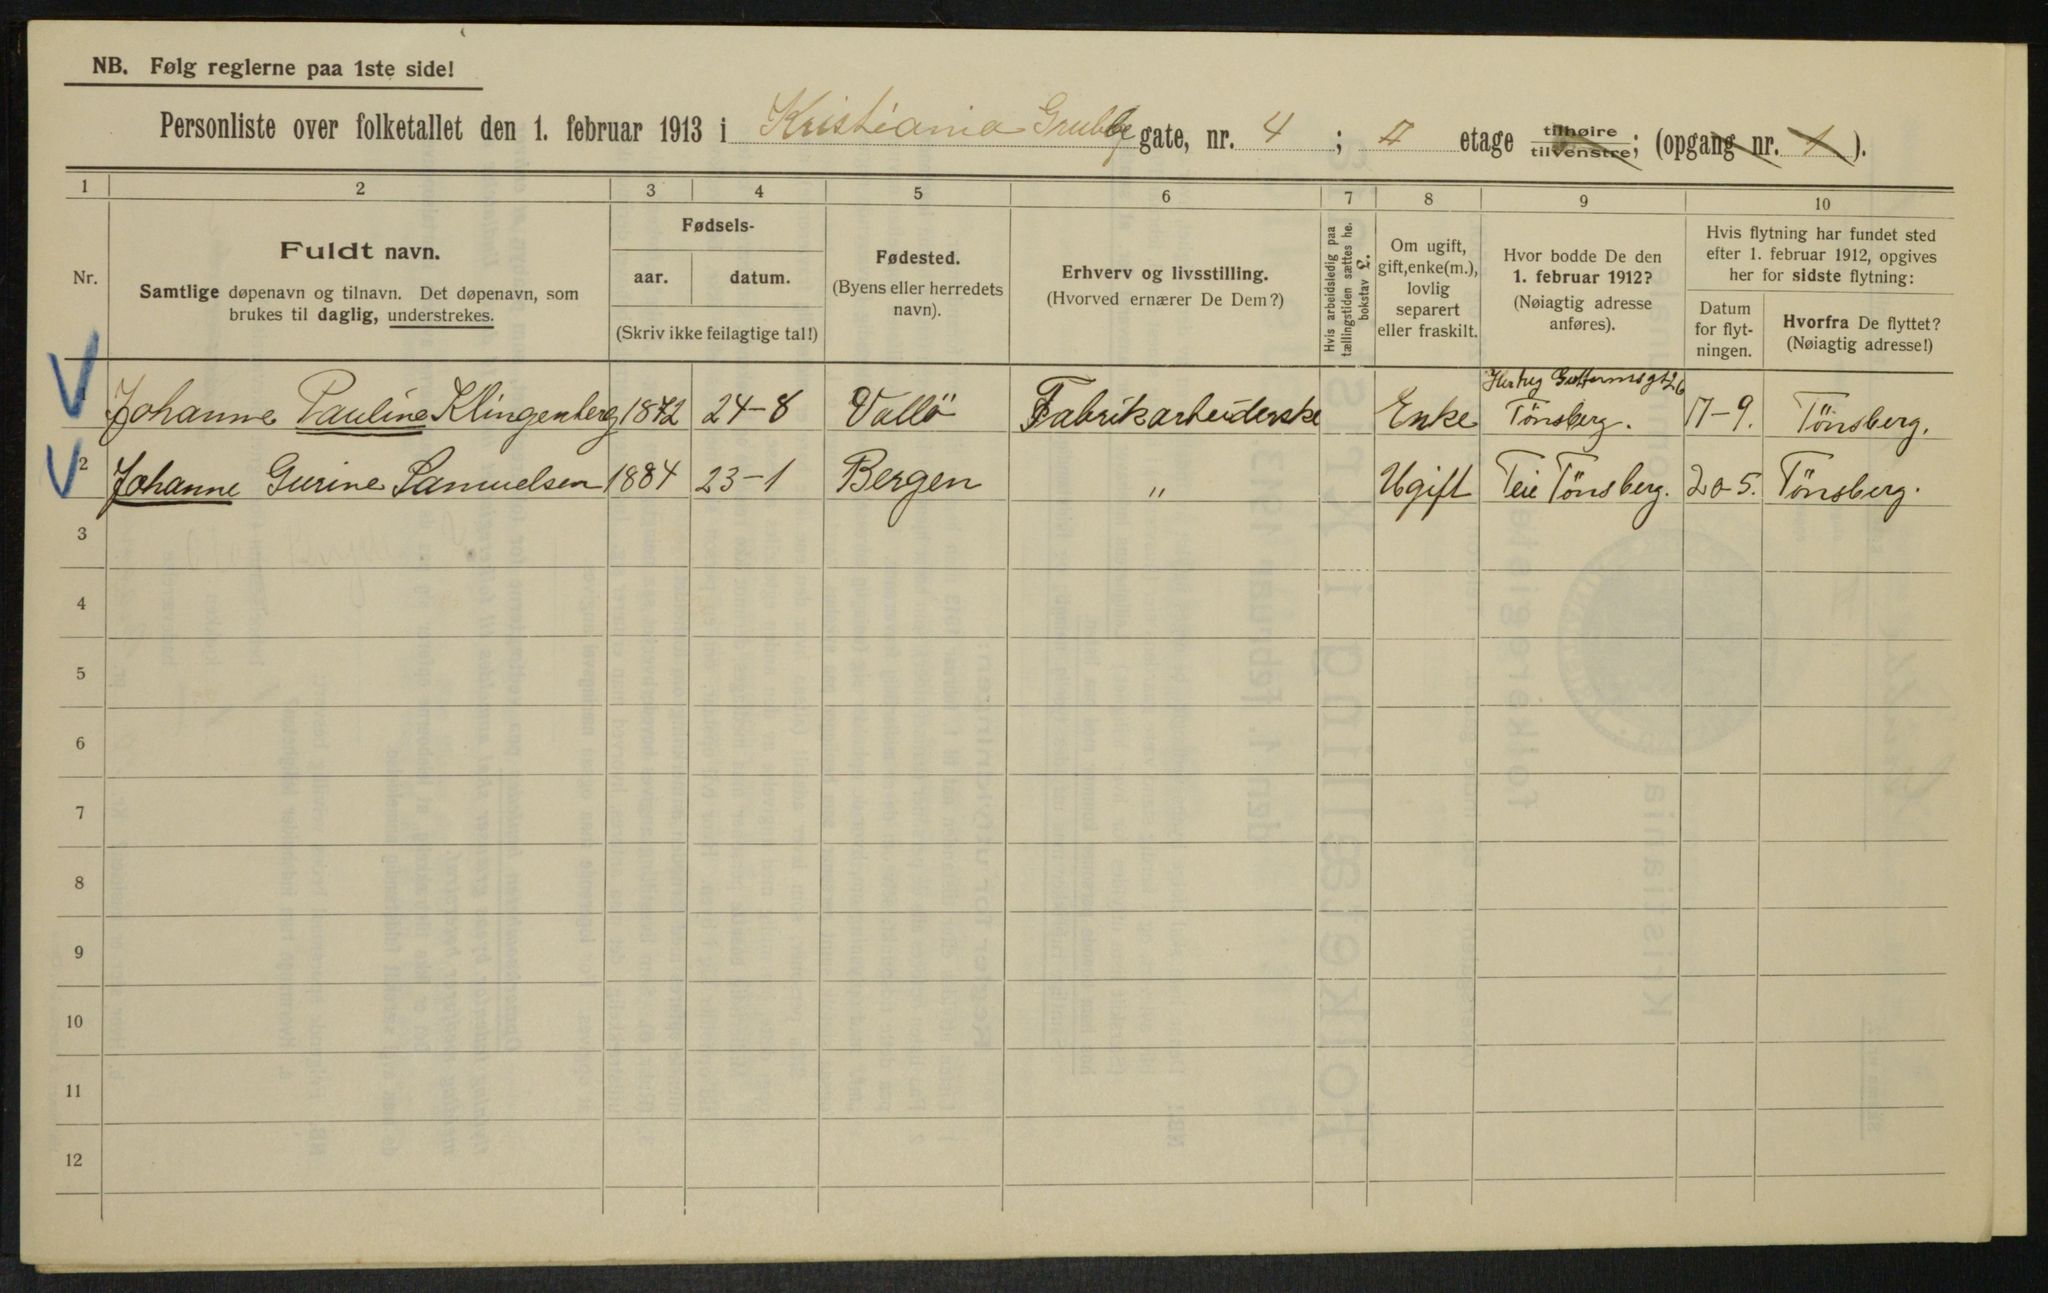 NB. Følg reglerne paa 1ste side!
Personliste over folketallet den 1. februar 1913 i Kristiania Grubbegate, nr. 4 ; II etage tilhøire tilvenstre; (opgang nr. 1).
1 2 3 4 5 6 7 8 9 10
Nr.
Fuldt navn.
Samtlige døpenavn og tilnavn. Det døpenavn, som
brukes til daglig, understrekes.
Fødsels-
aar. datum.
(Skriv ikke feilagtige tal!)
Fødested.
(Byens eller herredets
navn).
Erhverv og livsstilling.
(Hvorved ernærer De Dem?)
Hvis arbeidsledig paa
tællingstiden sættes he.
bokstav L.
Om ugift,
gift, enke(m.),
lovlig
separert
eller fraskilt.
Hvor bodde De den
1. februar 1912?
(Nøiagtig adresse
anføres).
Hvis flytning har fundet sted
efter 1. februar 1912, opgives
her for sidste flytning:
Datum
for flyt-
ningen.
Hvorfra De flyttet?
(Nøiagtig adresse!)
1 Johanne Pauline Klingenberg 1872 24-8 Vallö Fabrikarbeiderske Enke Hertug Guttormsgt 26 Tönsberg. 17-9. Tönsberg.
2 Johanne Gurine Samuelsen 1884 23-1 Bergen " Ugift Teie Tönsberg. 20-5. Tönsberg.
3
4
5
6
7
8
9
10
11
12